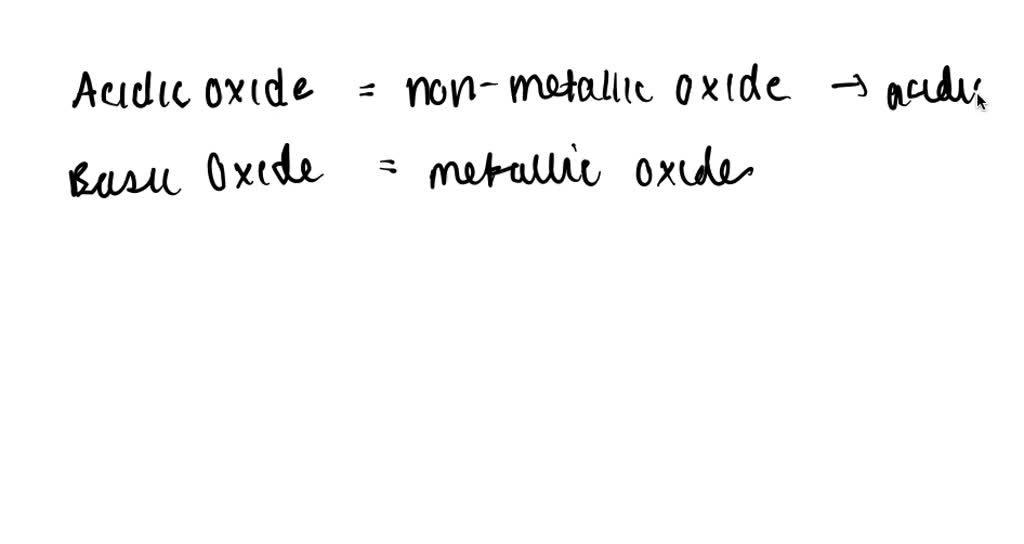 Acidic oxide = non-metallic oxide → acidic
Basic Oxide = metallic oxides